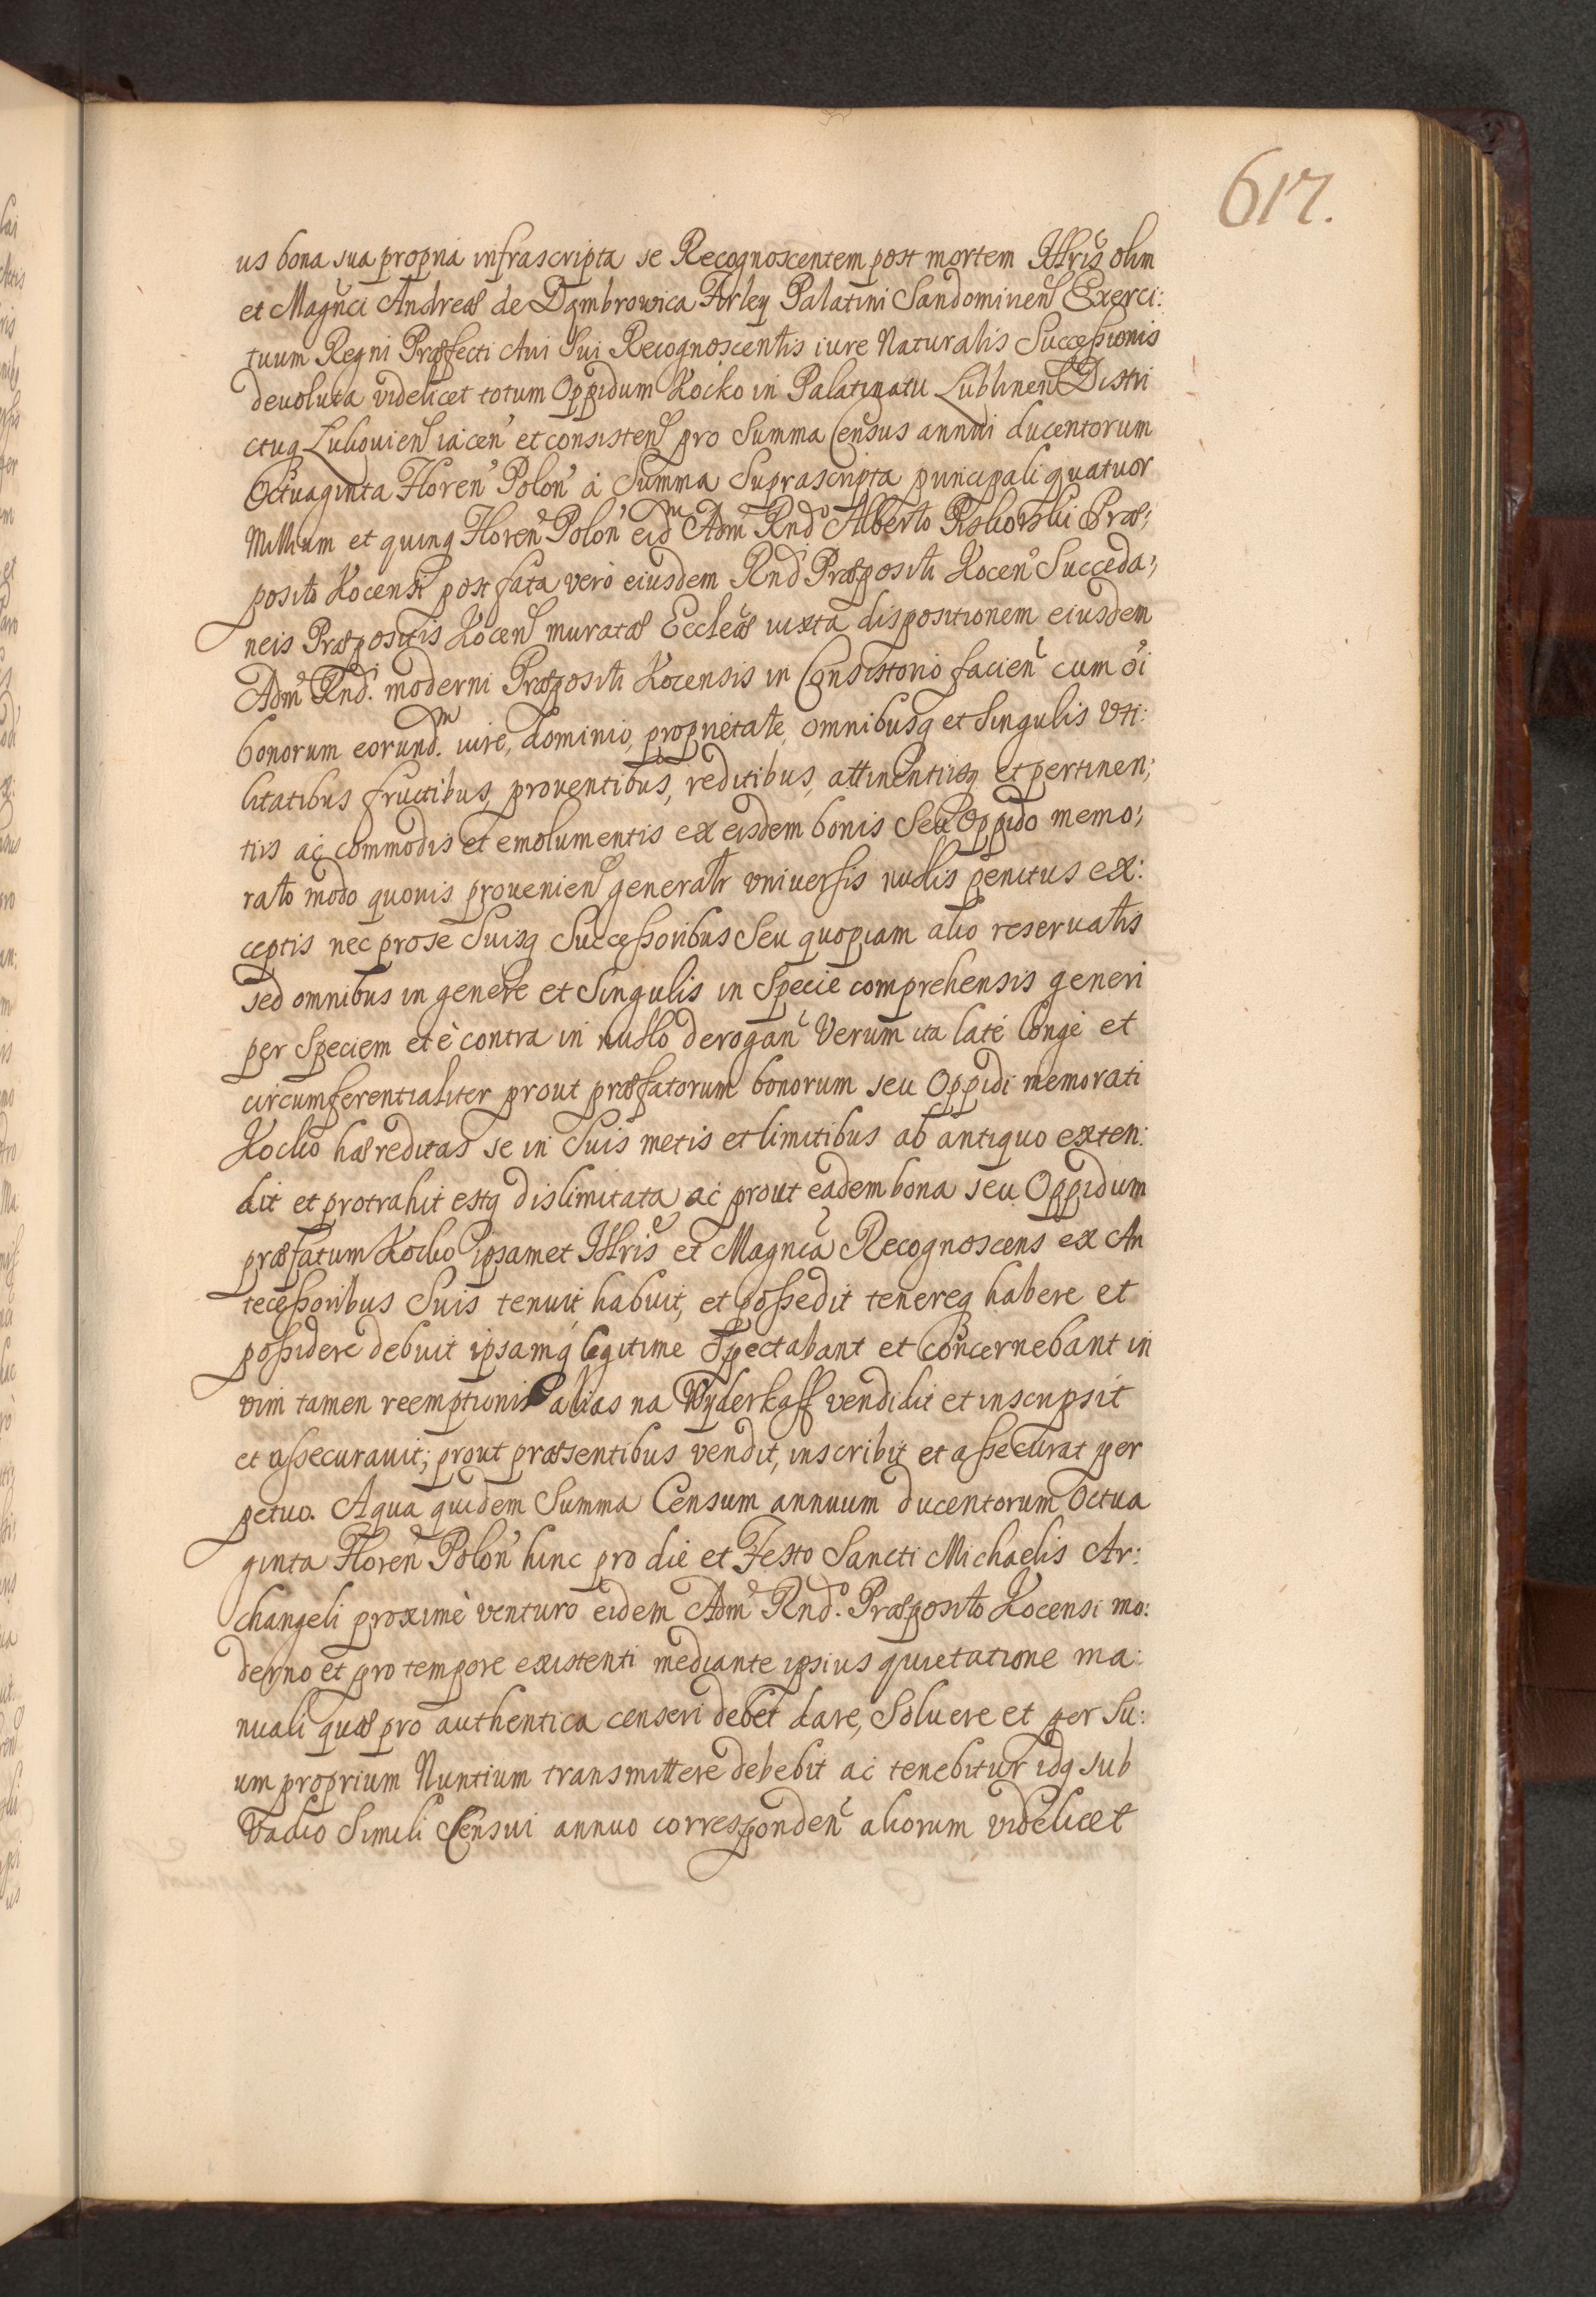 617.
us bona sua propria infrascripta se Recognoscentem post mortem Illris olim
et Magnci Andreæ de Dąmbrowica Firley Palatini Sandomirien Exerci:
tuum Regni Præfecti Avi Sui Recognoscentis iure Naturalis Successionis
devoluta videlicet totum Oppidum Kocko in Palatinatu Lublinen Distri
ctuq Lukovien iacen et consisten pro Summa Census annui ducentorum
Octuaginta Floren Polon à Summa Suprascripta principali quatuor
Millium et quinq Floren Polon eidm Adm Rndo Alberto Præ;
posito Kocensi post fata verò eiusdem Rndi Præpositi Kocen Succeda;
neis Præpositis Kocen muratæ Eccleæ iuxta dispositionem eiusdem
Adm Rndi moderni Præpositi Kocensis in Consistorio facien cum oi
bonorum eorundm iure, dominio, proprietate, omnibusq et Singulis Uti:
litatibus fructibus, proventibus, reditibus, attinentiisq et pertinen;
tiis ac commodis et emolumentis ex eisdem bonis Seu Oppido memo;
rato modo quovis provenien generalr universis nullis penitus ex:
ceptis nec pro se Suisq Successoribus Seu quopiam alio reservatis
sed omnibus in genere et Singulis in Specie comprehensis generi
per Speciem et è contra in nullo derogan Verum ita latè longè et
circumferentialiter prout præfatorum bonorum seu Oppidi memorati
Kocko hæreditas se in Suis metis et limitibus ab antiquo exten:
dit et protrahit estq dislimitata ac prout eadem bona seu Oppidum
præfatum Kocko ipsamet Illris et Magnca Recognoscens ex An
tecessoribus Suis tenuit, habuit, et possedit tenereq habere et
possidere debuit ipsamq legitime Spectabant et concernebant in
vim tamen reemptionis alias na Wyderkaff vendidit et inscripsit
et assecuravit; prout præsentibus vendit, inscribit et assecurat per
petuo. A qua quidem Summa Censum annuum ducentorum Octua
ginta Floren Polon hinc pro die et Festo Sancti Michaelis Ar:
changeli proximè venturo eidem Adm Rndo. Præposito Kocensi mo:
derno et pro tempore existenti mediante ipsius quietatione ma:
nuali quæ pro authentica censeri debet dare, Solvere et per Su:
um proprium Nuntium transmittere debebit ac tenebitur idq sub
Vadio Simili Censui annuo corresponden aliorum videlicet